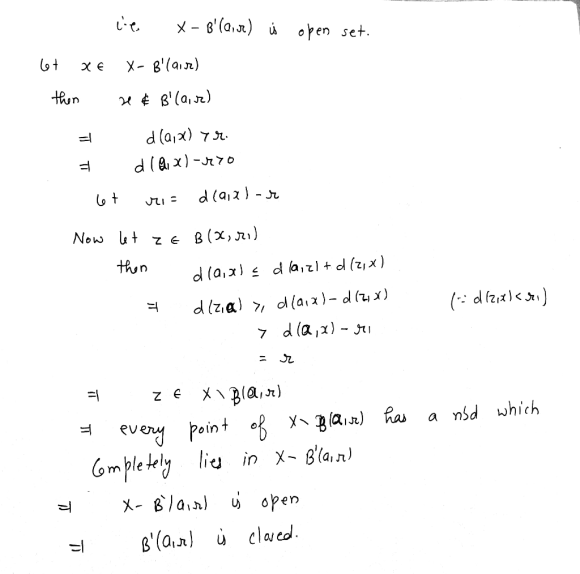 i.e. X - B'(a,r) is open set.
let x ∈ X - B'(a,r)
then x ∉ B'(a,r)
⇒ d(a,x) > r.
⇒ d(a,x) - r > 0
let r₁ = d(a,x) - r
Now let z ∈ B(x, r₁)
then d(a,x) ≤ d(a,z) + d(z,x)
⇒ d(z,a) ≥ d(a,x) - d(z,x) (∵ d(z,x) < r₁)
> d(a,x) - r₁
= r
⇒ z ∈ X \ B(a,r)
⇒ every point of X \ B(a,r) has a nbd which
Completely lies in X - B'(a,r)
⇒ X - B'(a,r) is open
⇒ B'(a,r) is closed.